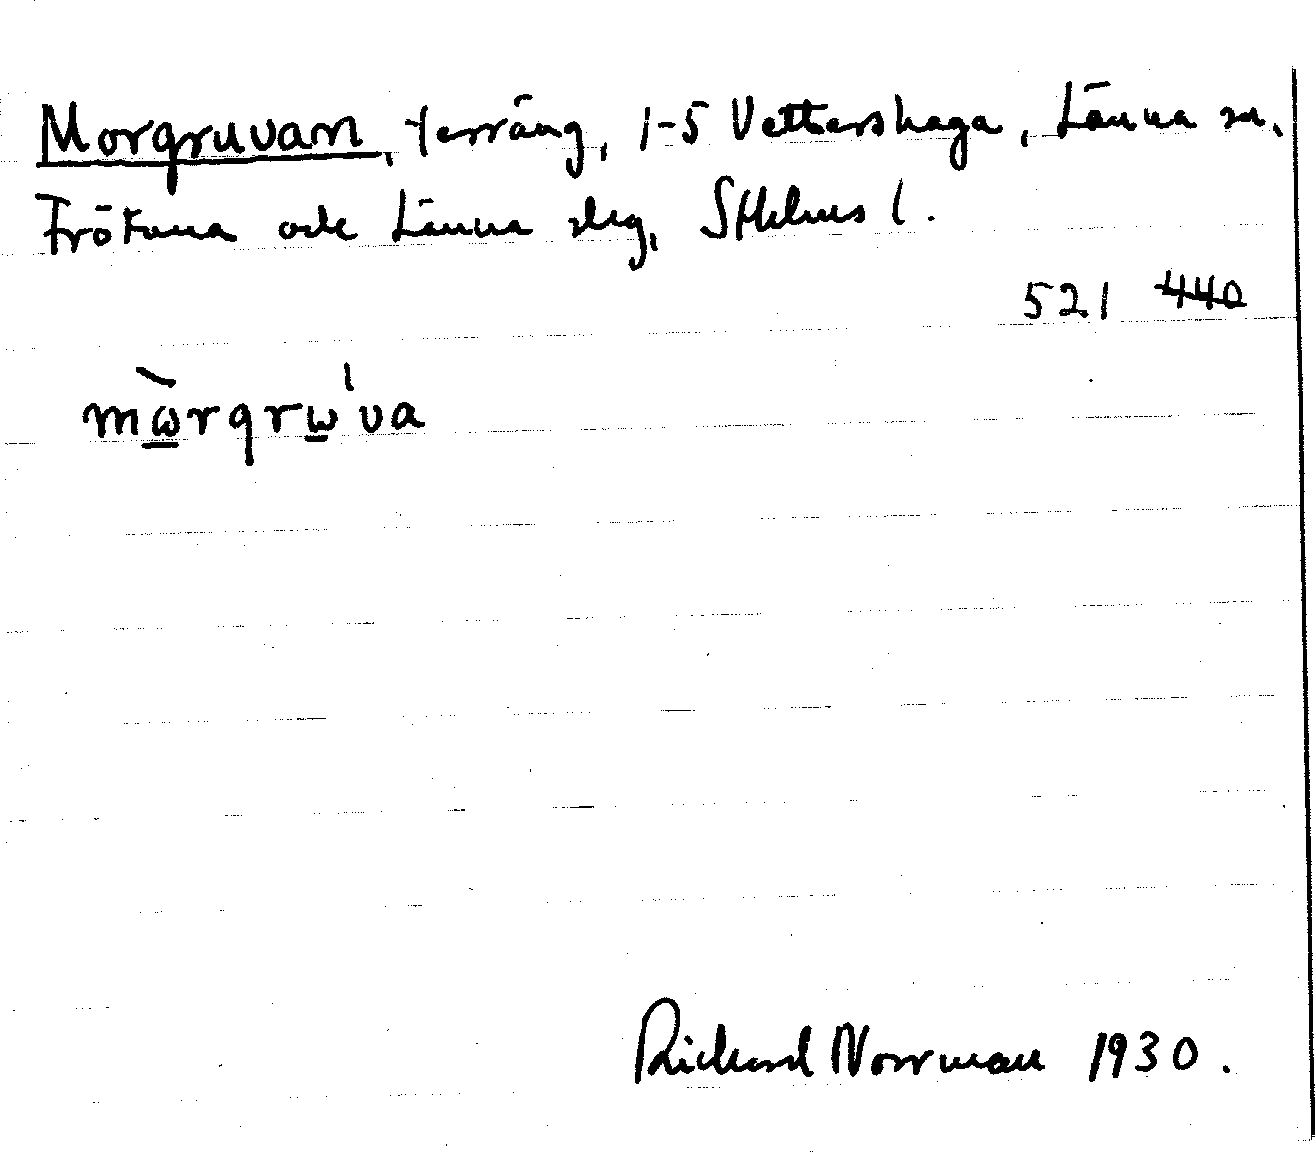 Morgruvan, terräng, 1-5 Vettershaga, Länna sn,
Frötuna och Länna slg, Sthlms l.
521 440
mὼ̲rgrω̲'va
Rickard Norrman 1930.